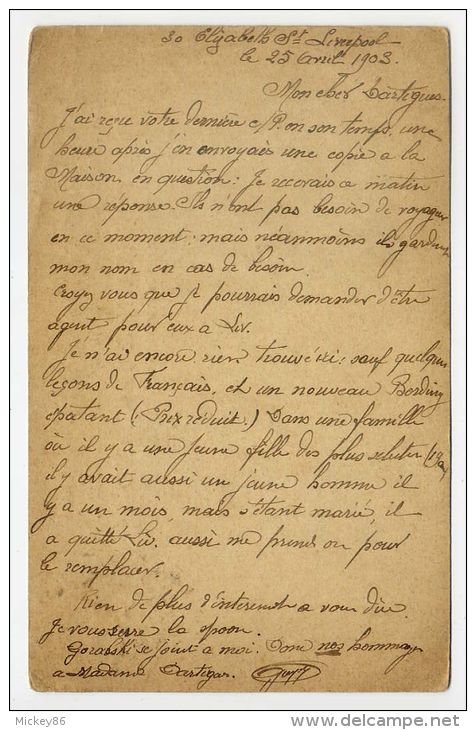 30 Elizabeth St Liverpool
le 25 Avril 1903
Mon cher Lartigues.
J'ai reçu votre dernière c/P. en son temps, une
heure après j'en envoyais une copie a la
Maison en question: Je recevais ce matin
une reponse. Ils n'ont pas besoin de voyageur
en ce moment; mais néanmoins ils gardent
mon nom en cas de besoin.
Croyez vous que je pourrais demander d'être
agent pour eux a Liv.
Je n'ai encore rien trouvé ici; sauf quelques
leçons de Français, et un nouveau Bording
epatant (Prix réduit.) Dans une famille
où il y a une jeune fille des plus
il y avait aussi un jeune homme il
y a un mois, mais s'étant marié, il
a quitté Liv. aussi me prend on pour
le remplacer.
Rien de plus d'interessant a vous dire
Je vous serre la
se joint a moi. Dans nos hommages
a Madame Lartigues.
Mickey86
http://www.delcampe.net